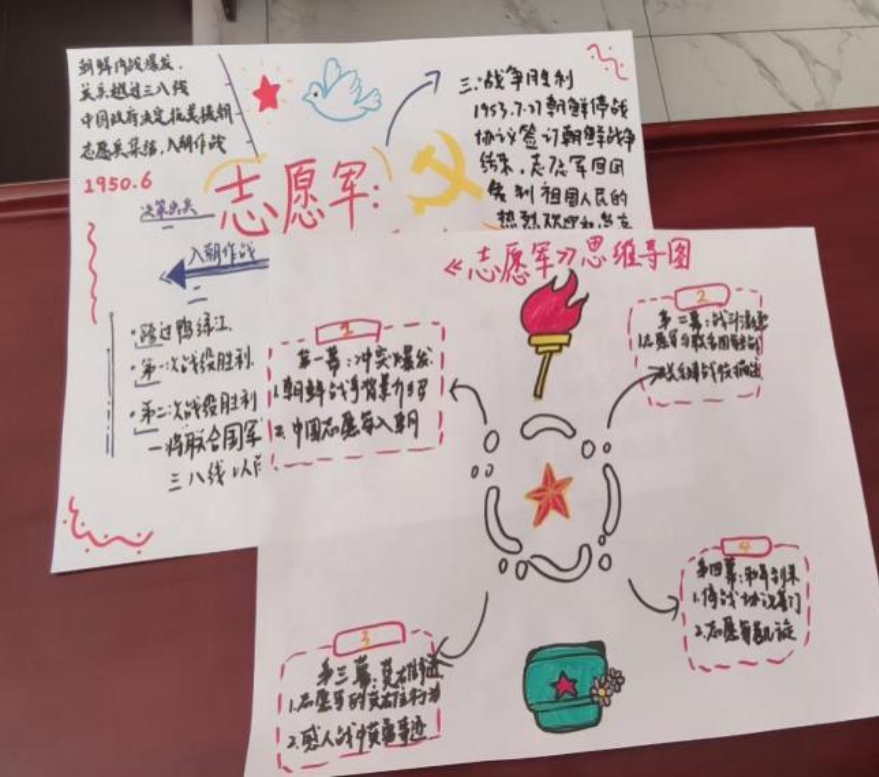 朝鲜内战爆发.
美兵越过三八线
中国政府决定抗美援朝
志愿兵集结,入朝作战
1950.6
决策出兵
一
志愿军:
入朝作战
二
·跨过鸭绿江.
·第一次战役胜利.
·第二次战役胜利
一将联合国军
三八线以
三.战争胜利
1953.7.27朝鲜停战
协议签订朝鲜战争
结束,志愿军回国
受到祖国人民的
热烈欢迎和
《志愿军》思维导图
1
第一幕:冲突爆发
1.朝鲜战争背景介绍
2.中国志愿军入朝
2
第二幕:战斗
1.志愿军与联合国军
3
第三幕:英雄事迹
1.志愿军的英雄主行为
2.感人战中英勇事迹
4
第四幕:和平到来
1.停战协议签订
2.志愿军凯旋